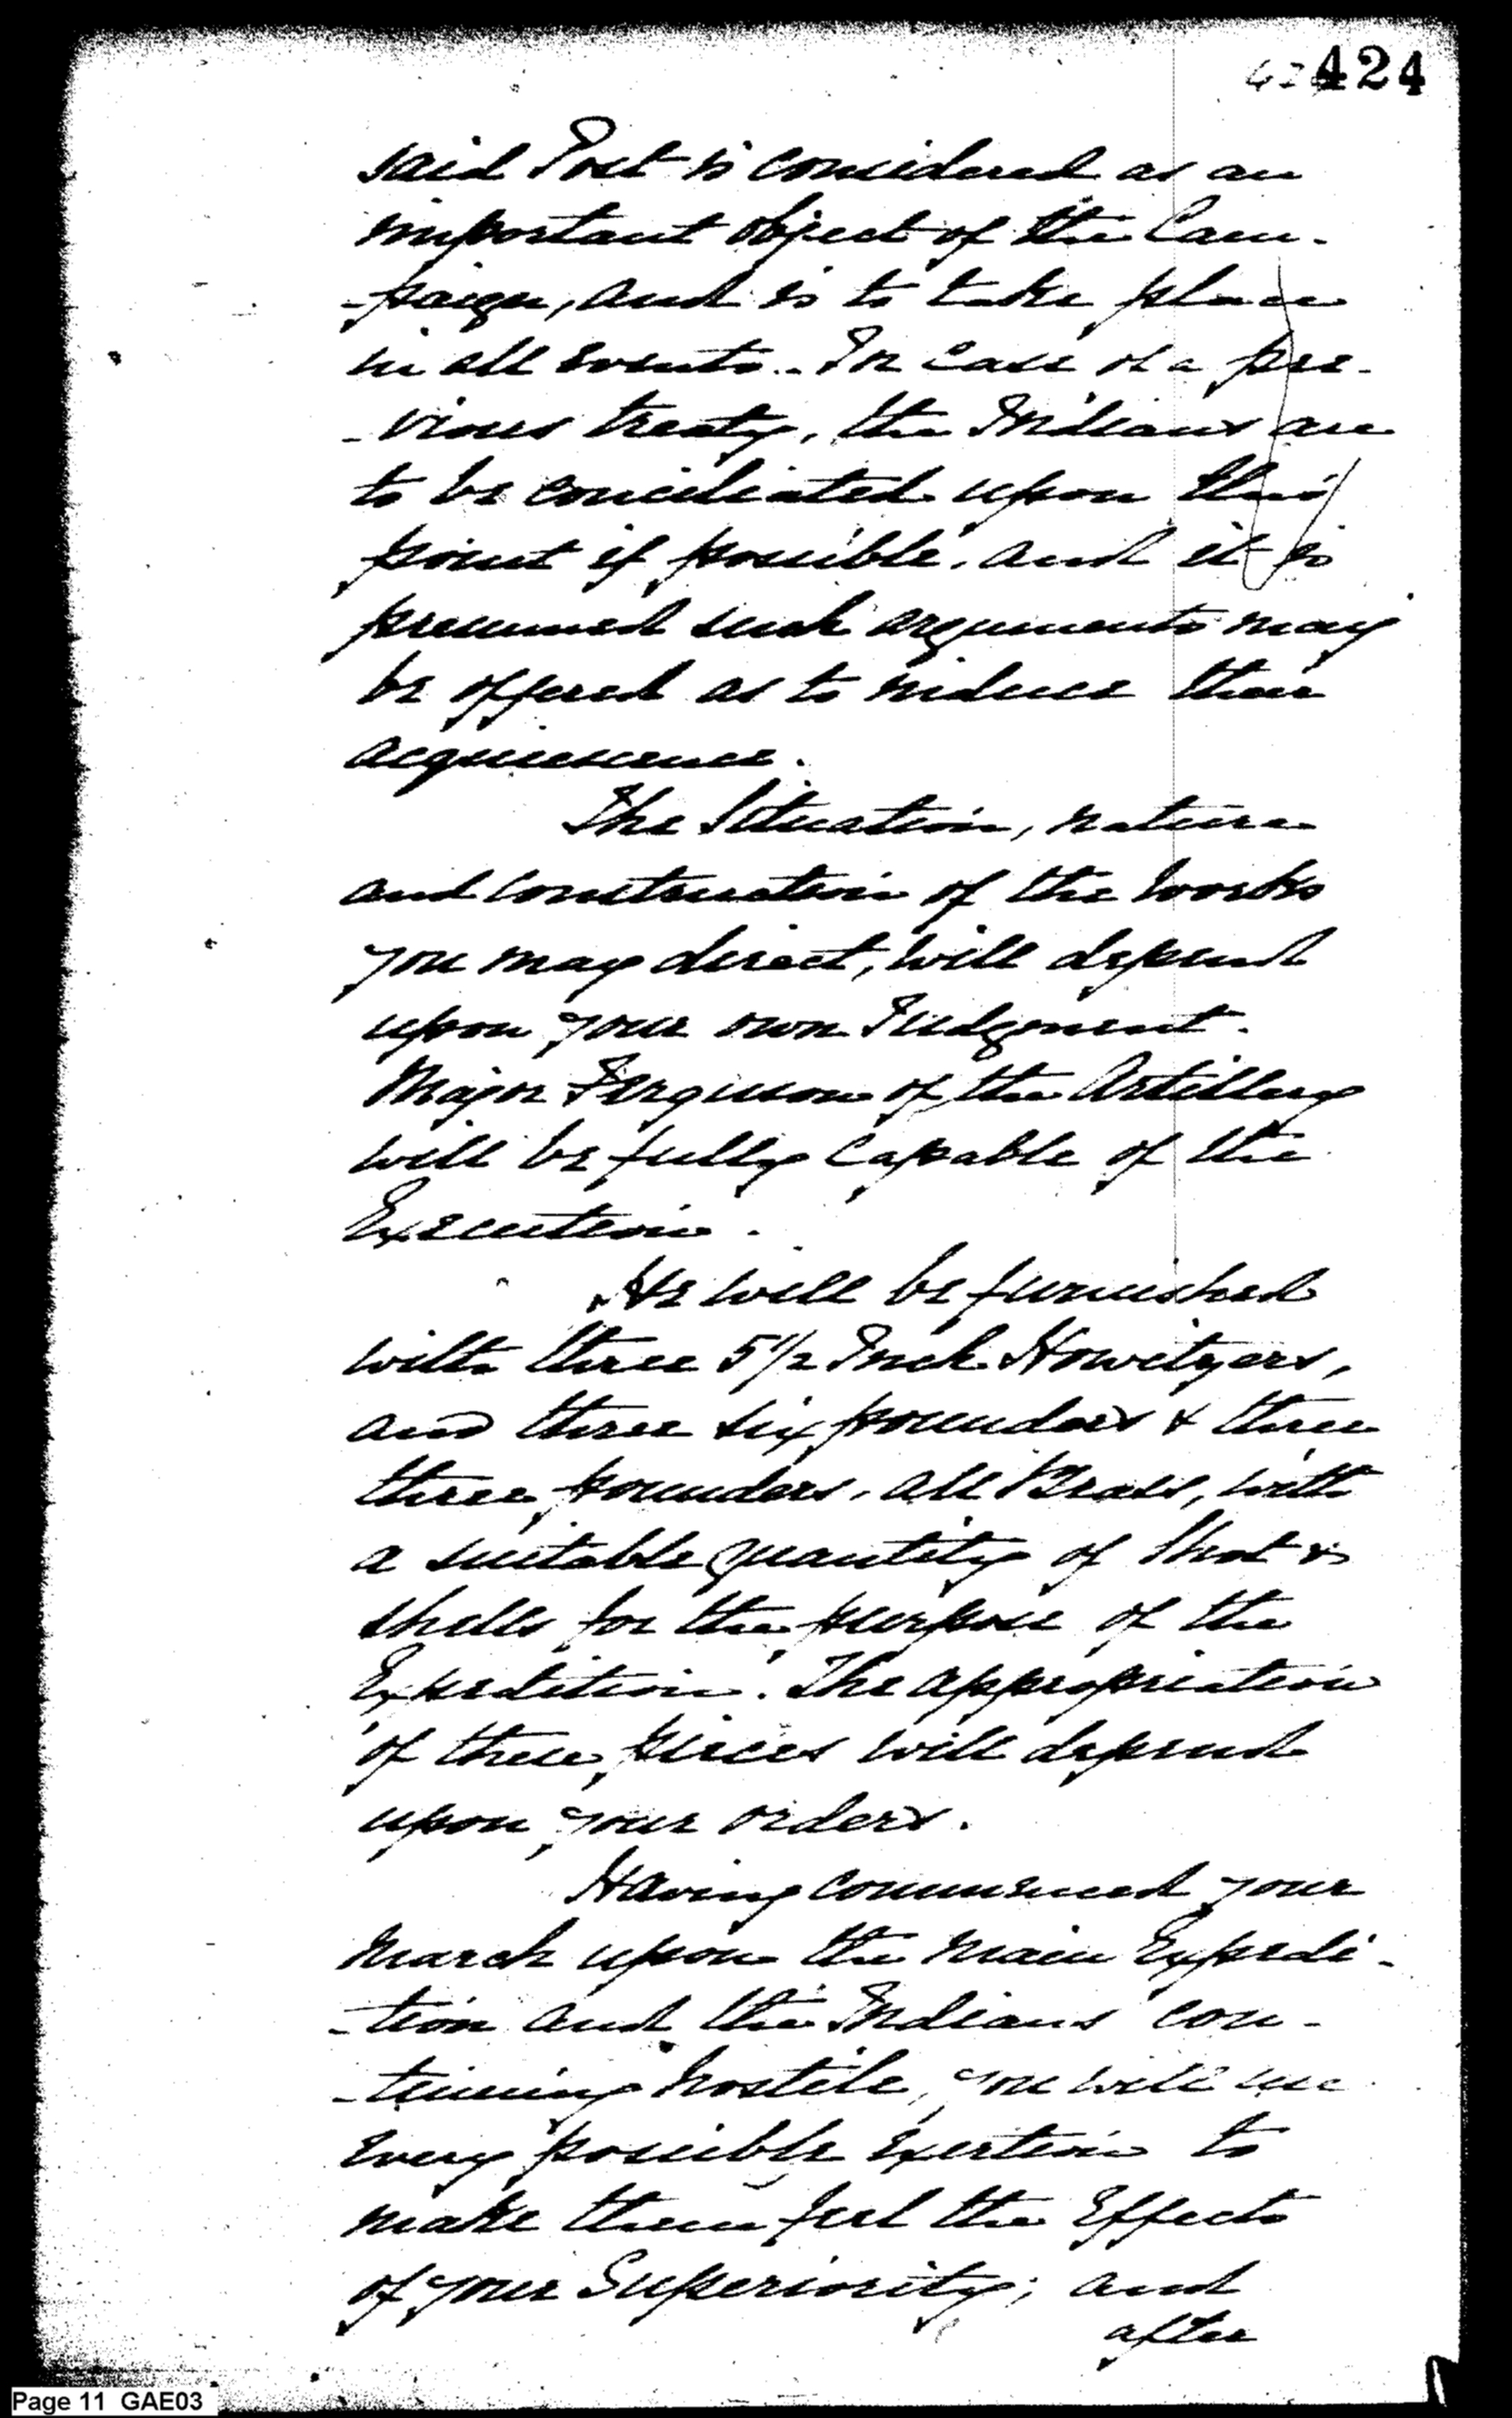 424
said Post is considered as an
important object of the Cam-
-paign, and is to take place
in all events. In case of a pre-
-vious treaty, the Indians are
to be conciliated upon this
point if possible, and it is
presumed such arguments may
be offered as to induce their
acquiescence.
The Situation, nature
and construction of the works
you may direct, will depend
upon your own Judgment.
Major Ferguson of the Artillery
will be fully Capable of the
Execution.
He will be furnished
with three 5 1/2 Inch Howitzers,
and three six pounders & three
three pounders, all Brass, with
a suitable quantity of Shot &
shells for the purpose of the
Expedition. The appropriation
of these pieces will depend
upon your orders.
Having commenced your
March upon the Main Expedi-
-tion and the Indians con-
-tinuing hostile, you will use
every possible exertion to
make them feel the Effects
of your Superiority; and
after
Page 11 GAE03